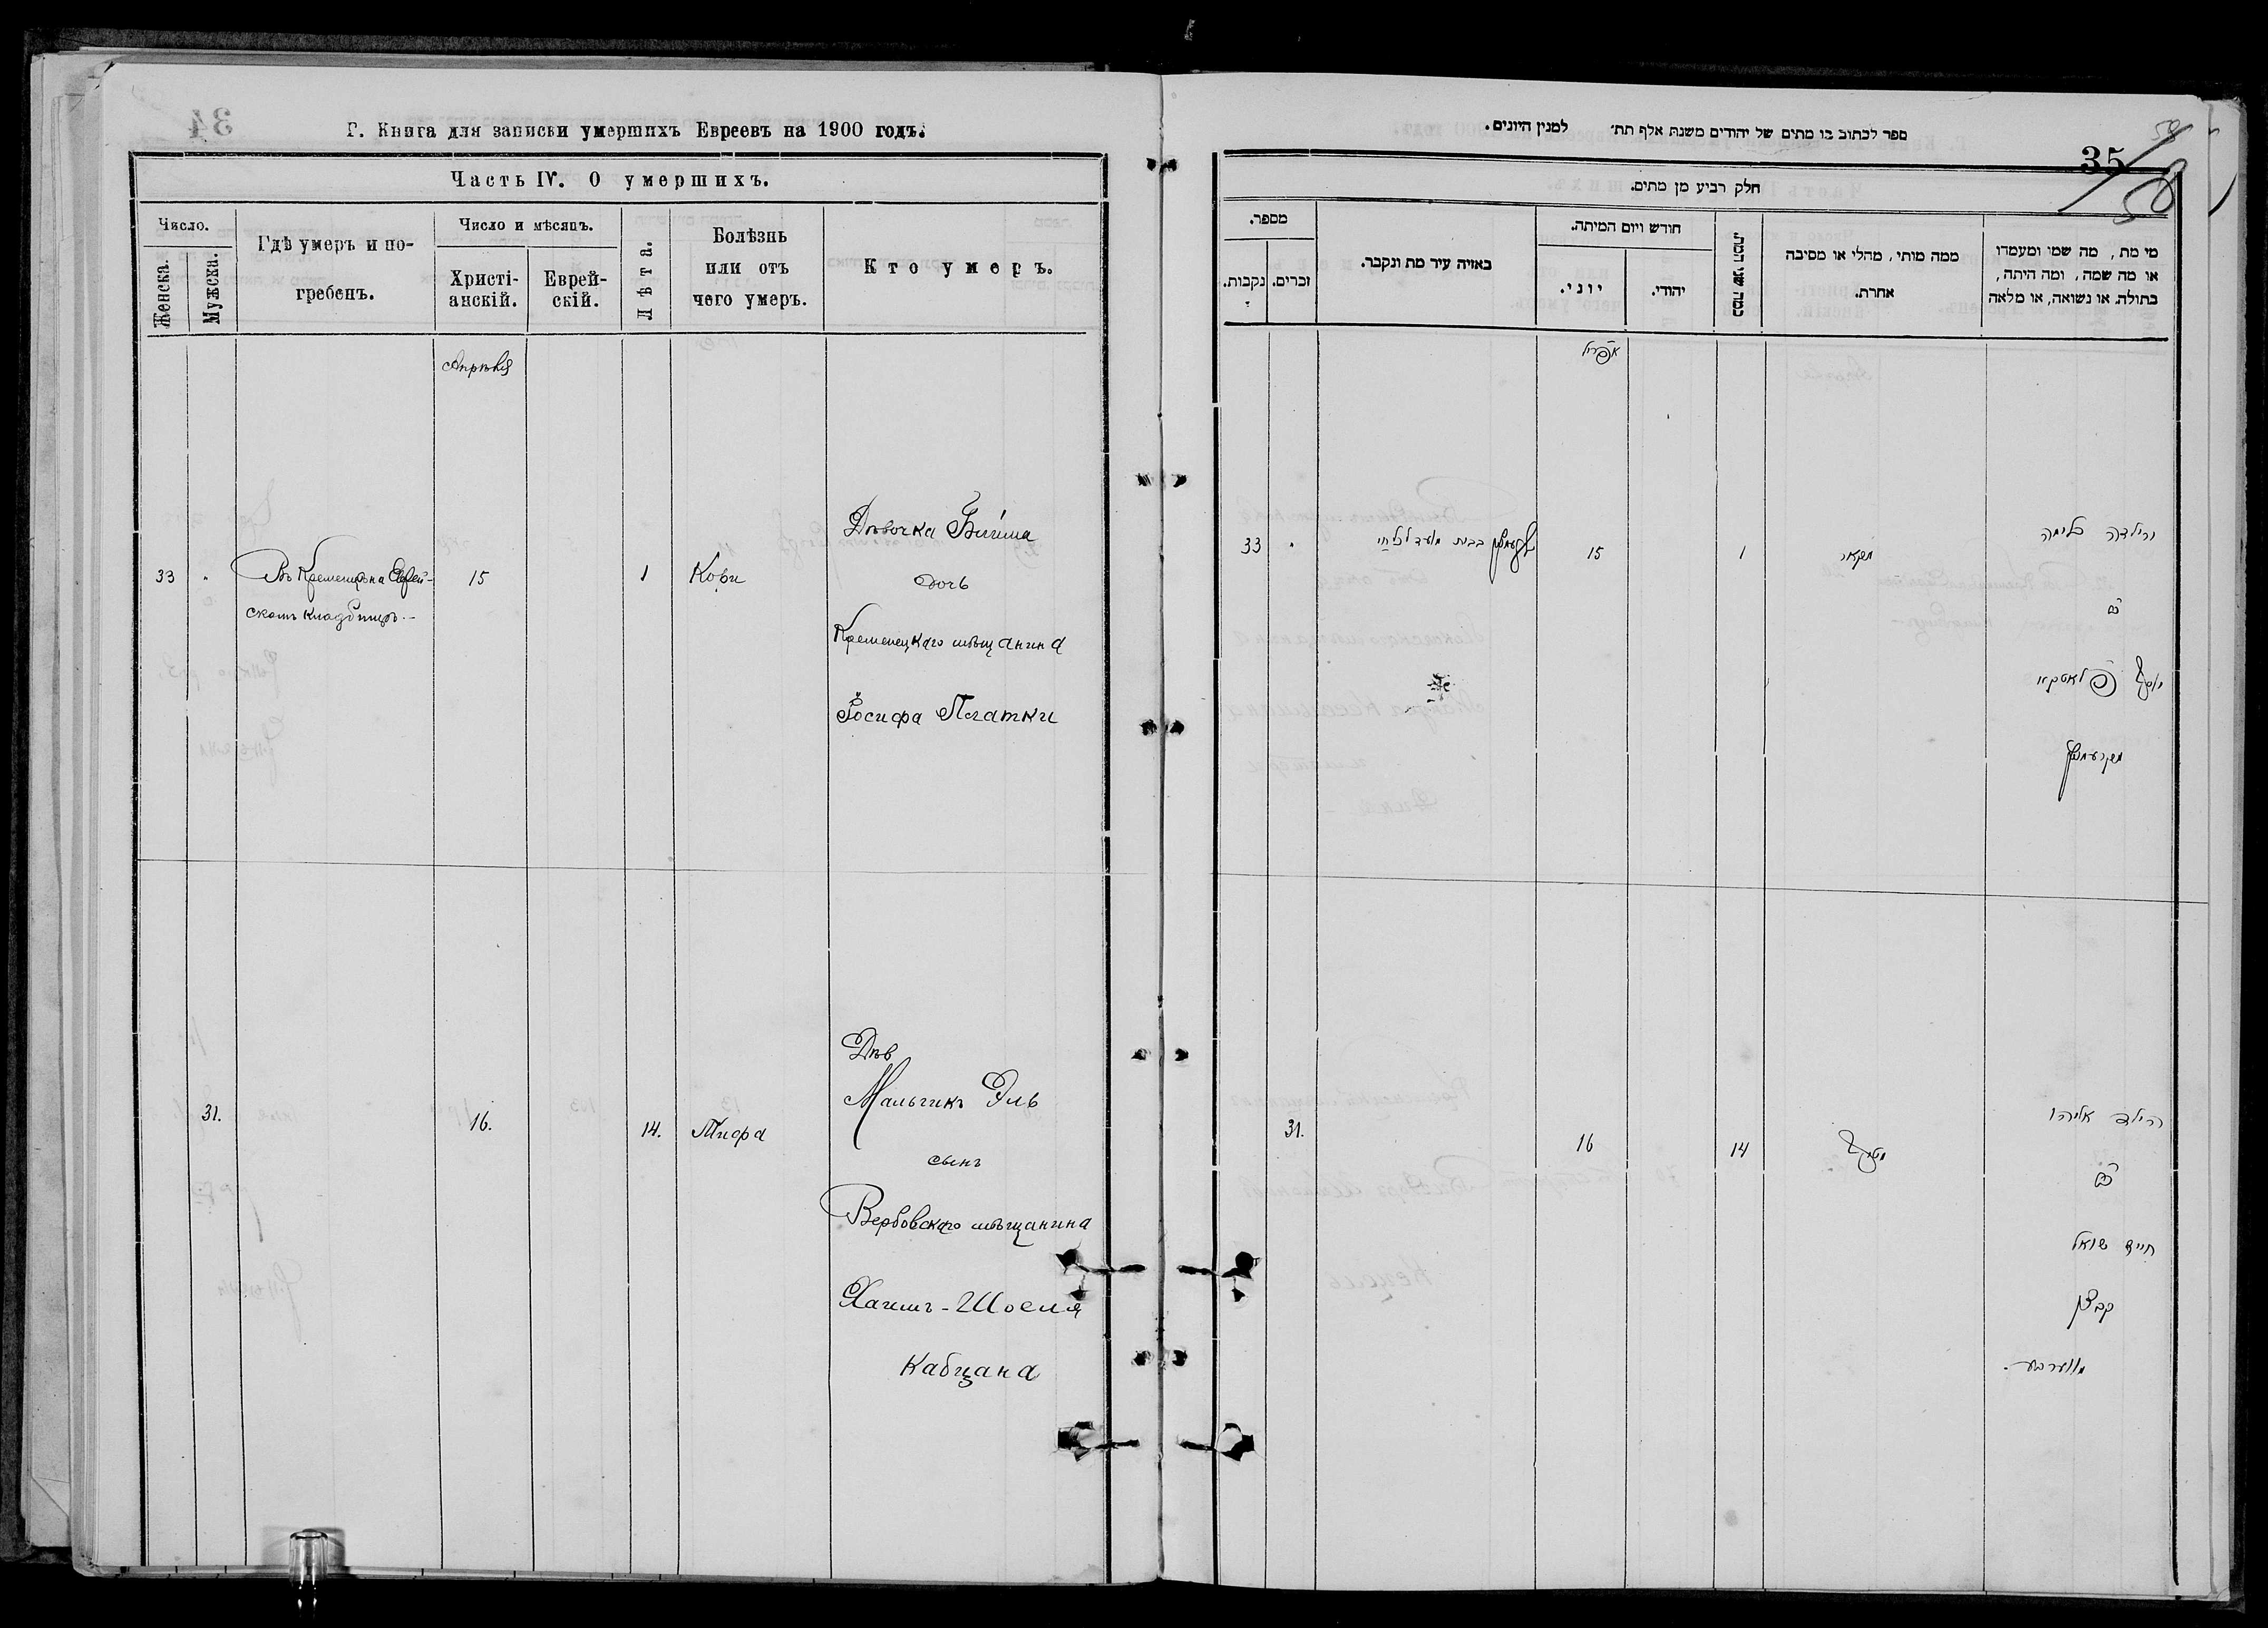 Г. Книга для записки умершихъ Евреевъ на 1900 годъ.
Часть IV. О умершихъ.
Число.
Женска.
Мужска.
Гдѣ умеръ и по-
гребенъ.
Число и мѣсяцъ.
Христі-
анскій.
Еврей-
скій.
Лѣта.
Болѣзнь
или отъ
чего умеръ.
Кто умеръ.
Апрѣля
33
Въ Кременцѣ на Еврей-
скомъ кладбищѣ
15
1
Кори
Дѣвочка
дочь
Кременецкаго мѣщанина
Іосифа Платки
31.
16.
14.
Тифа
Дѣв
Мальчикъ Эль
сынъ
Вербовскаго мѣщанина
Хаимъ-Шоеля
Кабцана
ספר לכתוב בו מתים של יהודים משנת אלף תת׳ למנין היונים.
35
58
חלק רביע מן מתים.
מספר.
נקבות.
זכרים.
באיזה עיר מת ונקבר.
חודש ויום המיתה.
יוני.
יהודי.
כמה שני המת.
ממה מותי, מחלי או מסיבה
אחרת.
מי מת, מה שמו ומעמדו
או מה שמה, ומה היתה,
בתולה. או נשואה, או מלאה
אפריל
33
15
1
הילדה
יוסף פלאטקא
מקרעמניץ
31.
16
14
הילד אליהו
חיים שואל
קבצן
מווערבע.